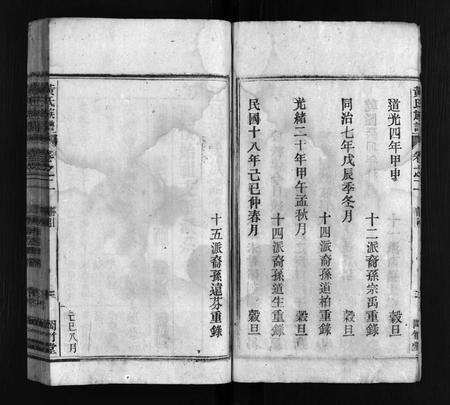 黃氏族譜
卷之二
道光四年甲申
穀旦
十二派裔孫宗禹重錄
同治七年戊辰季冬月
穀旦
十四派裔孫道柏重錄
光緒二十年甲午孟秋月
穀旦
十四派裔孫道生重錄
民國十八年己巳仲春月
穀旦
十五派裔孫遠芬重錄
黃氏族譜
卷之二
己巳八月